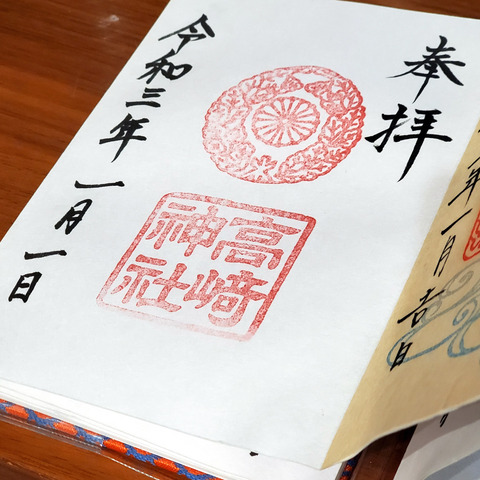 奉拝
高﨑
神社
令和三年一月一日
年一月吉日